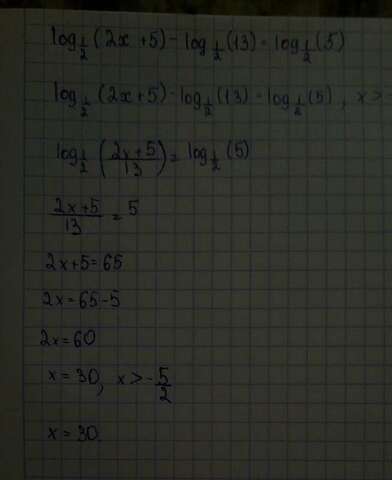 log½(2x+5) - log½(13) = log½(5)
log½(2x+5) - log½(13) = log½(5), x > -
log½((2x+5)/13) = log½(5)
(2x+5)/13 = 5
2x+5=65
2x=65-5
2x=60
x=30, x > -5/2
x=30.